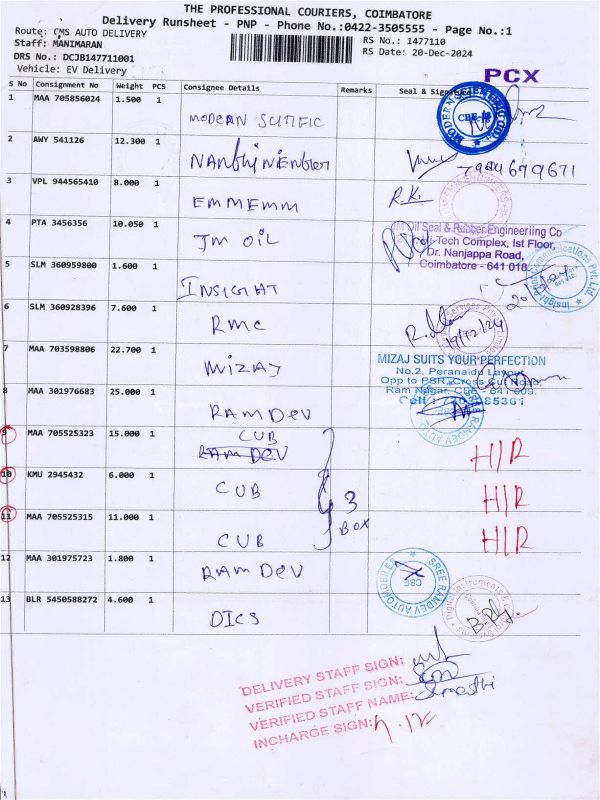 THE PROFESSIONAL COURIERS, COIMBATORE
Delivery Runsheet - PNP - Phone No.:0422-3505555 - Page No.:1
Route: CMS AUTO DELIVERY
Staff: MANIMARAN
RS No.: 1477110
DRS No.: DCJB147711001
RS Date: 20-Dec-2024
Vehicle: EV Delivery
PCX
S No Consignment No Weight PCS Consignee Details Remarks Seal & Signature
1 MAA 705856024 1.500 1 MODERN
2 AWY 541126 12.300 1
3 VPL 944565410 8.000 1 EMMEMM R.K.
4 PTA 3456356 10.050 1 JM OIL
Oil Seal & Rubber Engineeriing Co
Tech Complex, Ist Floor,
Dr. Nanjappa Road,
Coimbatore - 641 018.
5 SLM 360959800 1.600 1 INSIGHT
6 SLM 360928396 7.600 1 RMC
19/12/24
7 MAA 703598806 22.700 1 MIZAJ
MIZAJ SUITS YOUR PERFECTION
No.2, Peranaidu Layout,
Opp to PSR, Cross Cut Road,
Ram Nagar, CBE - 641 009.
Cell :
8 MAA 301976683 25.000 1 RAMDEV
9 MAA 705525323 15.000 1 CUB H/R
RAMDEV
10 KMU 2945432 6.000 1 CUB 3 BOX H/R
11 MAA 705525315 11.000 1 CUB H/R
12 MAA 301975723 1.800 1 RAMDEV
SREE RAMDEV AUTOMOBILES
CBE
13 BLR 5450588272 4.600 1 DICS
DELIVERY STAFF SIGN:
VERIFIED STAFF SIGN:
VERIFIED STAFF NAME:
INCHARGE SIGN: